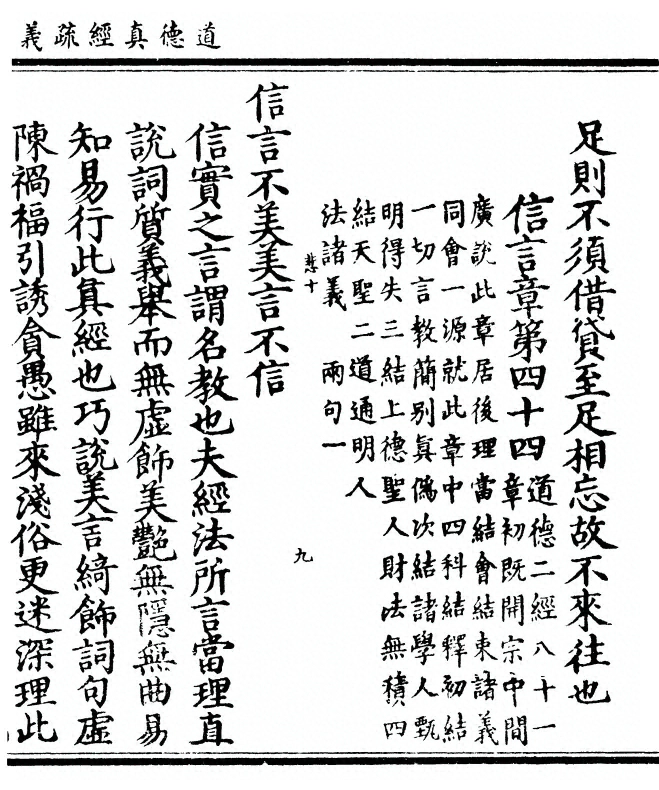 道德真經疏義
足則不須借貸至足相忘故不來往也
信言章第四十四
道德二經八十一
章初既開宗中間
廣說此章居後理當結會結束諸義
同會一源就此章中四科結釋初結
一切言教簡別真偽次結諸學人甄
明得失三結上德聖人財法無積四
結天聖二道通明人
法諸義　兩句一
悲十　九
信言不美美言不信
信實之言謂名教也夫經法所言當理直
說詞質義舉而無虛飾美艷無隱無曲易
知易行此真經也巧說美言綺飾詞句虛
陳禍福引誘貪愚雖來淺俗更迷深理此